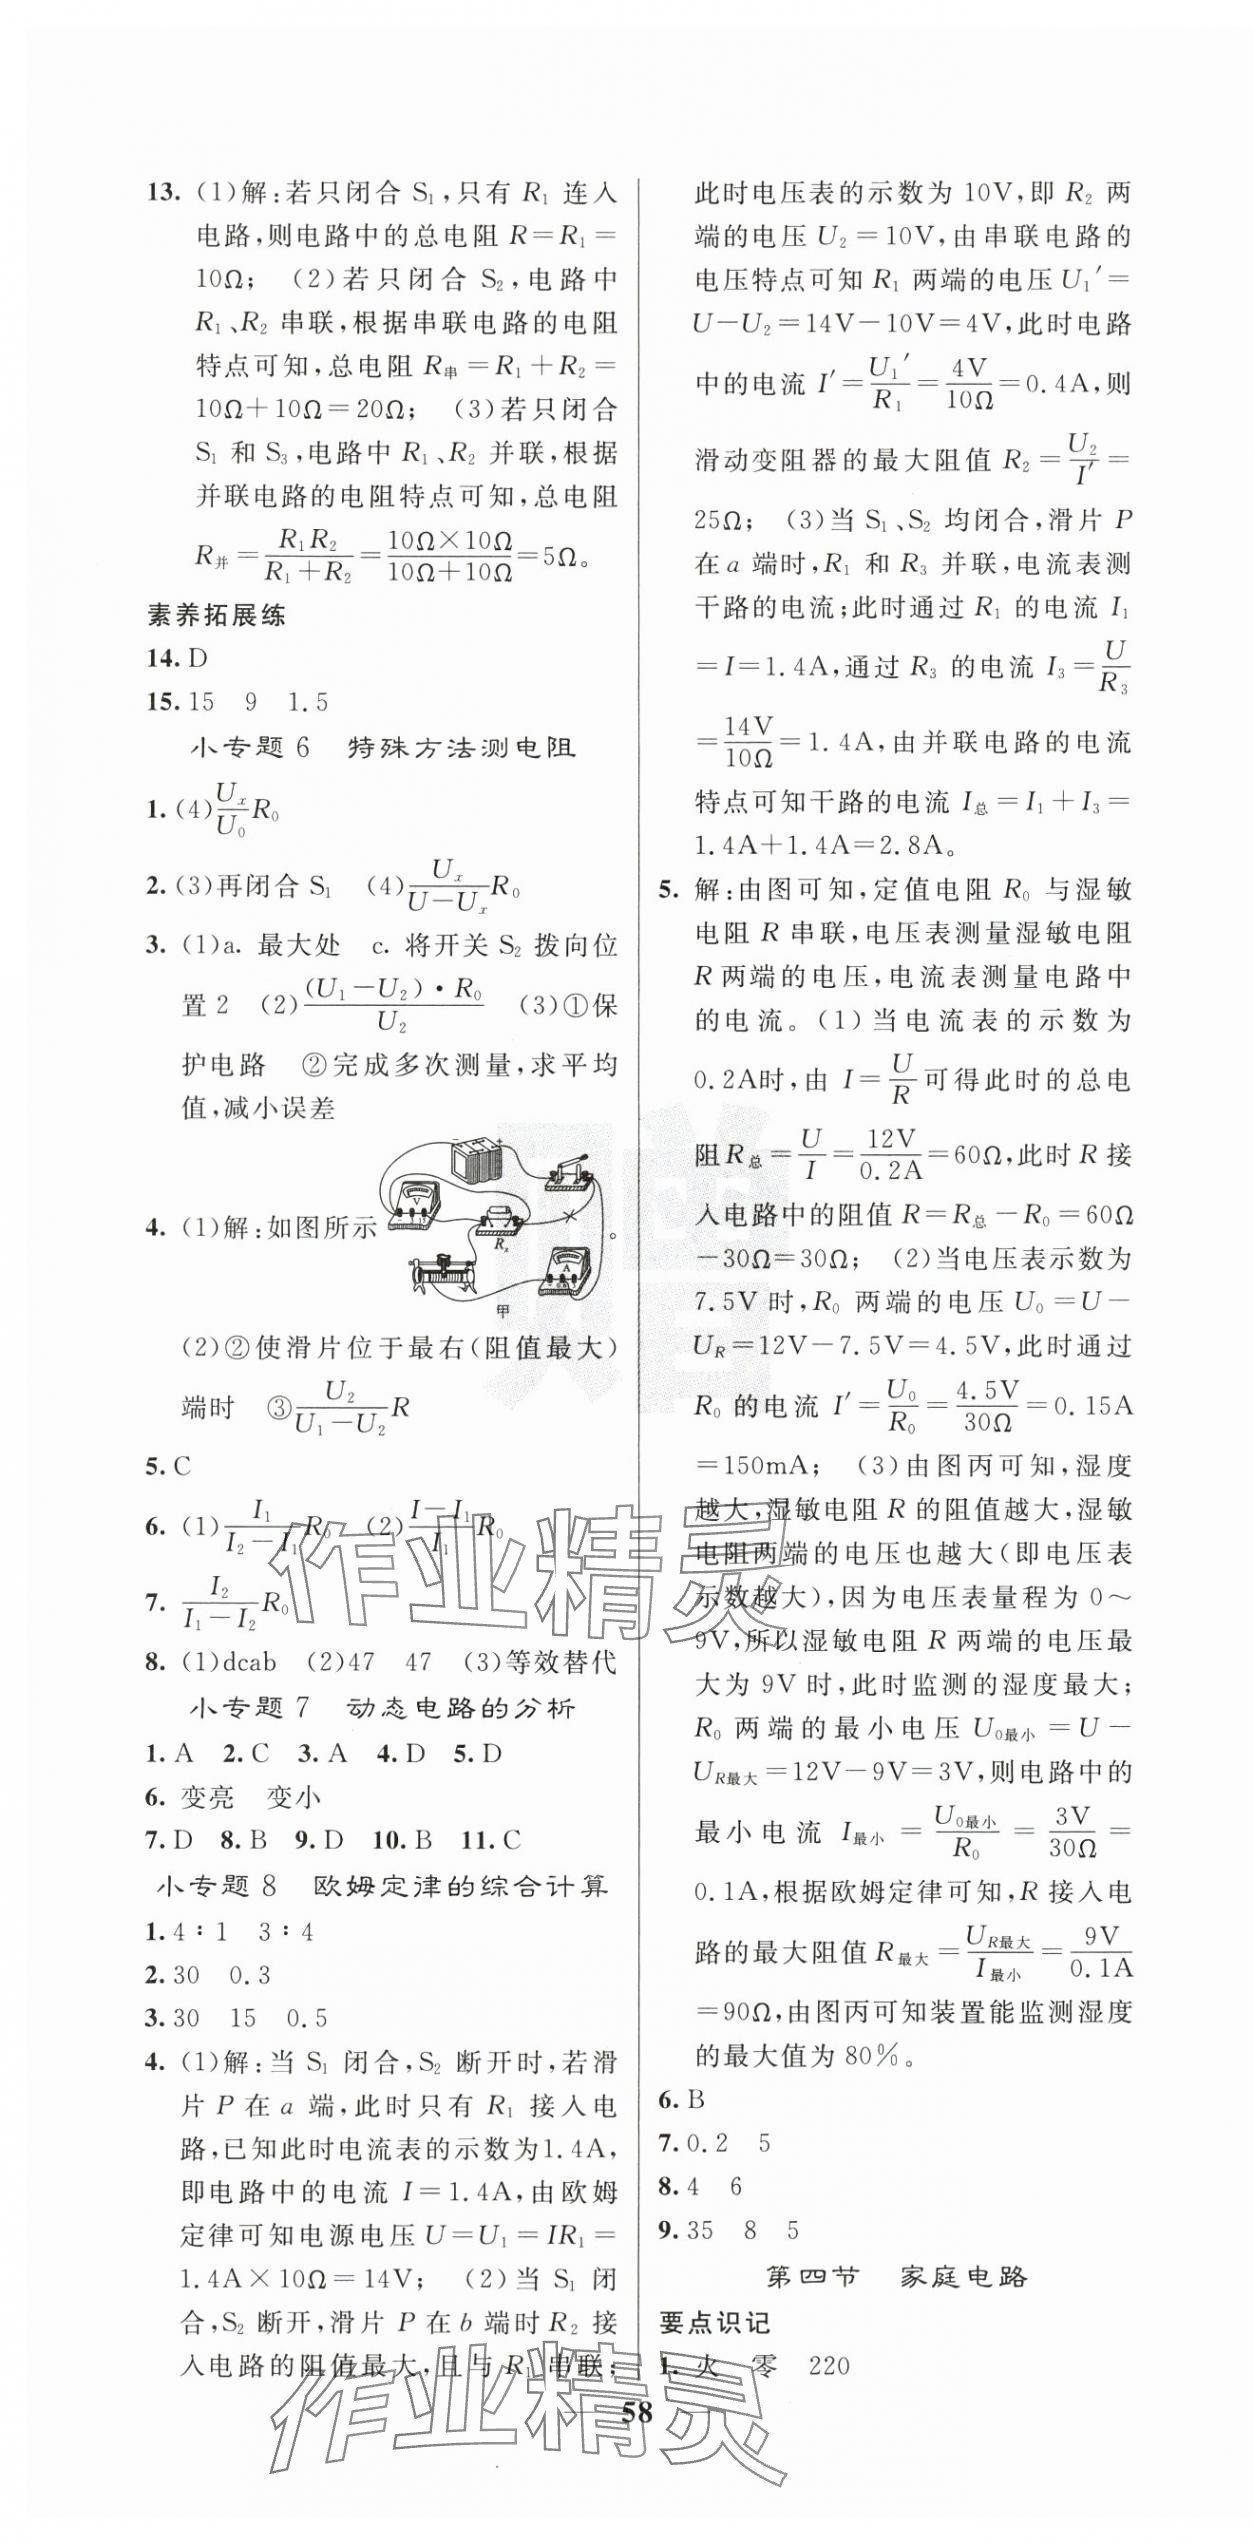 13. (1)解:若只闭合 S₁,只有 R₁ 连入
电路,则电路中的总电阻 R=R₁=
10Ω; (2)若只闭合 S₂,电路中
R₁、R₂ 串联,根据串联电路的电阻
特点可知,总电阻 R串=R₁+R₂=
10Ω+10Ω=20Ω; (3)若只闭合
S₁ 和 S₃,电路中 R₁、R₂ 并联,根据
并联电路的电阻特点可知,总电阻
R并=R₁R₂/(R₁+R₂)=(10Ω×10Ω)/(10Ω+10Ω)=5Ω。
素养拓展练
14. D
15. 15 9 1.5
小专题 6 特殊方法测电阻
1. (4)(Uₓ/U₀)R₀
2. (3)再闭合 S₁ (4)(Uₓ/(U-Uₓ))R₀
3. (1)a. 最大处 c. 将开关 S₂ 拨向位
置 2 (2)(U₁-U₂)·R₀/U₂ (3)①保
护电路 ②完成多次测量,求平均
值,减小误差
4. (1)解:如图所示
- +
V
Rₓ
A
甲
。
(2)②使滑片位于最右(阻值最大)
端时 ③(U₂/(U₁-U₂))R
5. C
6. (1)(I₁/(I₂-I₁))R₀ (2)((I-I₁)/I₁)R₀
7. (I₂/(I₁-I₂))R₀
8. (1)dcab (2)47 47 (3)等效替代
小专题 7 动态电路的分析
1. A 2. C 3. A 4. D 5. D
6. 变亮 变小
7. D 8. B 9. D 10. B 11. C
小专题 8 欧姆定律的综合计算
1. 4∶1 3∶4
2. 30 0.3
3. 30 15 0.5
4. (1)解:当 S₁ 闭合,S₂ 断开时,若滑
片 P 在 a 端,此时只有 R₁ 接入电
路,已知此时电流表的示数为1.4A,
即电路中的电流 I=1.4A,由欧姆
定律可知电源电压 U=U₁=IR₁=
1.4A×10Ω=14V; (2)当 S₁ 闭
合,S₂ 断开,滑片 P 在 b 端时 R₂ 接
入电路的阻值最大,且与 R₁ 串联;
此时电压表的示数为 10V,即 R₂ 两
端的电压 U₂=10V,由串联电路的
电压特点可知 R₁ 两端的电压 U₁′=
U-U₂=14V-10V=4V,此时电路
中的电流 I′=U₁′/R₁=4V/10Ω=0.4A,则
滑动变阻器的最大阻值 R₂=U₂/I′=
25Ω; (3)当 S₁、S₂ 均闭合,滑片 P
在 a 端时,R₁ 和 R₃ 并联,电流表测
干路的电流;此时通过 R₁ 的电流 I₁
=I=1.4A,通过 R₃ 的电流 I₃=U/R₃
=14V/10Ω=1.4A,由并联电路的电流
特点可知干路的电流 I总=I₁+I₃=
1.4A+1.4A=2.8A。
5. 解:由图可知,定值电阻 R₀ 与湿敏
电阻 R 串联,电压表测量湿敏电阻
R 两端的电压,电流表测量电路中
的电流。(1)当电流表的示数为
0.2A时,由 I=U/R可得此时的总电
阻R总=U/I=12V/0.2A=60Ω,此时 R 接
入电路中的阻值 R=R总-R₀=60Ω
-30Ω=30Ω; (2)当电压表示数为
7.5V 时,R₀ 两端的电压 U₀=U-
U_R=12V-7.5V=4.5V,此时通过
R₀ 的电流 I′=U₀/R₀=4.5V/30Ω=0.15A
=150mA; (3)由图丙可知,湿度
越大,湿敏电阻 R 的阻值越大,湿敏
电阻两端的电压也越大(即电压表
示数越大),因为电压表量程为 0～
9V,所以湿敏电阻 R 两端的电压最
大为 9V 时,此时监测的湿度最大;
R₀ 两端的最小电压 U₀最小=U-
U_R最大=12V-9V=3V,则电路中的
最小电流 I最小=U₀最小/R₀=3V/30Ω=
0.1A,根据欧姆定律可知,R 接入电
路的最大阻值 R最大=U_R最大/I最小=9V/0.1A
=90Ω,由图丙可知装置能监测湿度
的最大值为 80%。
6. B
7. 0.2 5
8. 4 6
9. 35 8 5
第四节 家庭电路
要点识记
1. 火 零 220
58
作业精灵
作业精灵